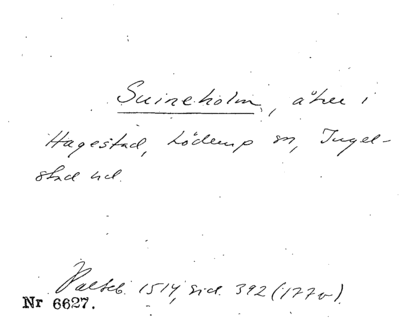 Suineholm, åker i
Hagestad, Löderup sn, Ingel-
stad hd.
Palteb. 1514, sid. 392 (177v).
Nr 6627.